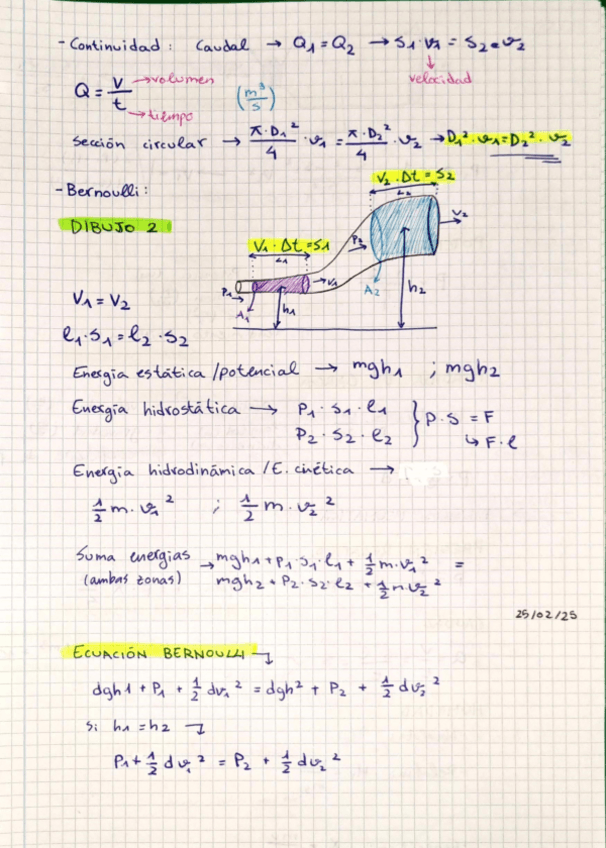 - Continuidad: Caudal → Q1 = Q2 → S1 · v1 = S2 · v2
velocidad
Q = V/t → volumen (m³/s)
→ tiempo
sección circular → π·D1²/4 · v1 = π·D2²/4 · v2 → D1² · v1 = D2² · v2
- Bernoulli:
V2 · Δt = S2
L2
DIBUJO 2
V1 · Δt = S1
L1
P2
V2
P1
V1
A1
h1
A2
h2
V1 = V2
l1 · S1 = l2 · S2
Energía estática / potencial → mgh1 ; mgh2
Energía hidrostática → P1 · S1 · l1 } P·S = F
P2 · S2 · l2 ↳ F·l
Energía hidrodinámica / E. cinética →
1/2 m · v1² ; 1/2 m · v2²
Suma energías → mgh1 + P1·S1·l1 + 1/2 m·v1² =
(ambas zonas) mgh2 + P2·S2·l2 + 1/2 m·v2²
25/02/25
ECUACIÓN BERNOULLI
dgh1 + P1 + 1/2 dv1² = dgh² + P2 + 1/2 dv2²
si h1 = h2
P1 + 1/2 dv1² = P2 + 1/2 dv2²